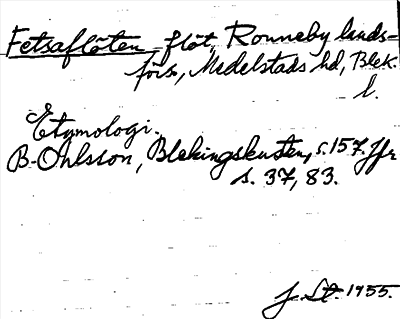 Fetsaflöten, flöt, Ronneby lands-
förs., Medelstads hd, Blek.
l.
Etymologi.
B. Ohlsson, Blekingskusten, s. 157. Jfr
s. 37, 83.
J. St. 1955.